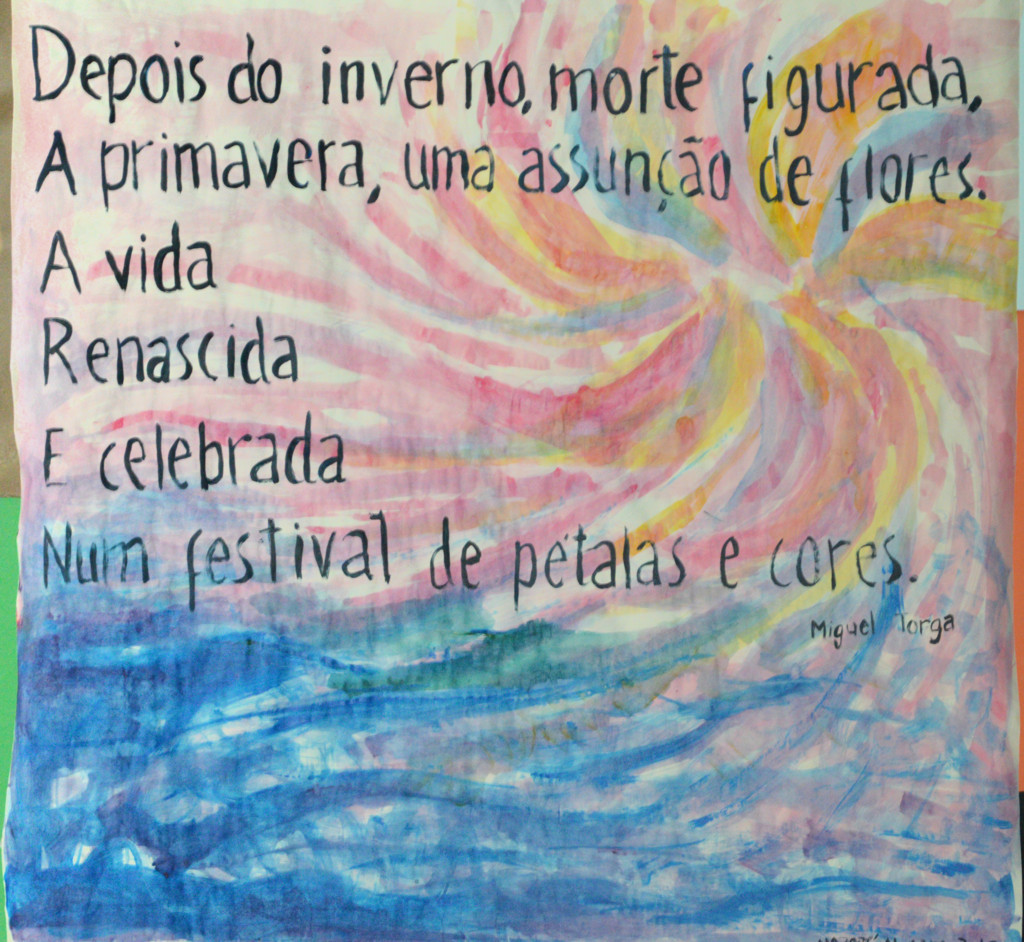 Depois do inverno, morte figurada,
A primavera, uma assunção de flores.
A vida
Renascida
E celebrada
Num festival de pétalas e cores.
Miguel Torga